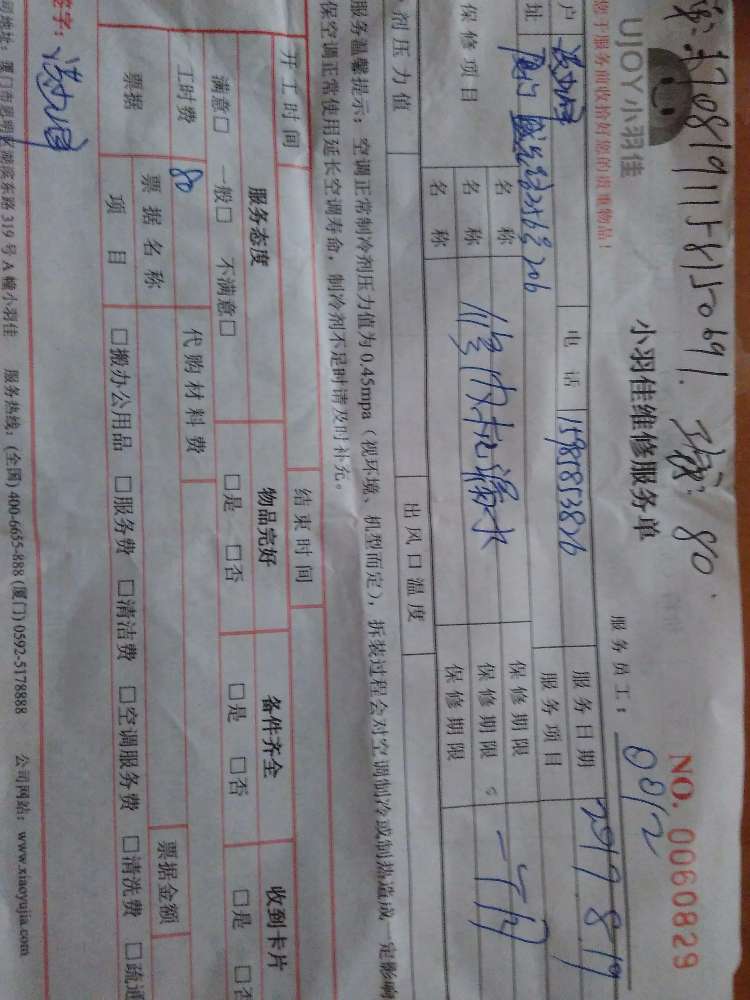 170819111581150691. 80.
NO. 0060829
UJOY 小羽佳
小羽佳维修服务单
服务员工: 0812
您于服务前收拾好您的贵重物品!
户 电话 15985853826 服务日期 2017 8 19
址 206 服务项目
保修项目 名称 保修期限
名称 修内机漏水 保修期限 一个月
名称 保修期限
剂压力值 出风口温度
服务温馨提示: 空调正常制冷剂压力值为0.45mpa (视环境、机型而定), 拆装过程会对空调制冷或制热造成一定影响
保空调正常使用延长空调寿命, 制冷剂不足时请及时补充。
开工时间 结束时间
服务态度 物品完好 备件齐全 收到卡片
满意□ 一般□ 不满意□ □是 □否 □是 □否 □是 □否
工时费 80 代购材料费
票据 票据名称 票据金额
项目 □搬办公用品 □服务费 □清洁费 □空调服务费 □清洗费 □疏通
签字:
司地址: 厦门市思明区湖滨东路319号A幢小羽佳 服务热线: (全国) 400-6655-888 (厦门) 0592-5178888 公司网站: www.xiaoyujia.com